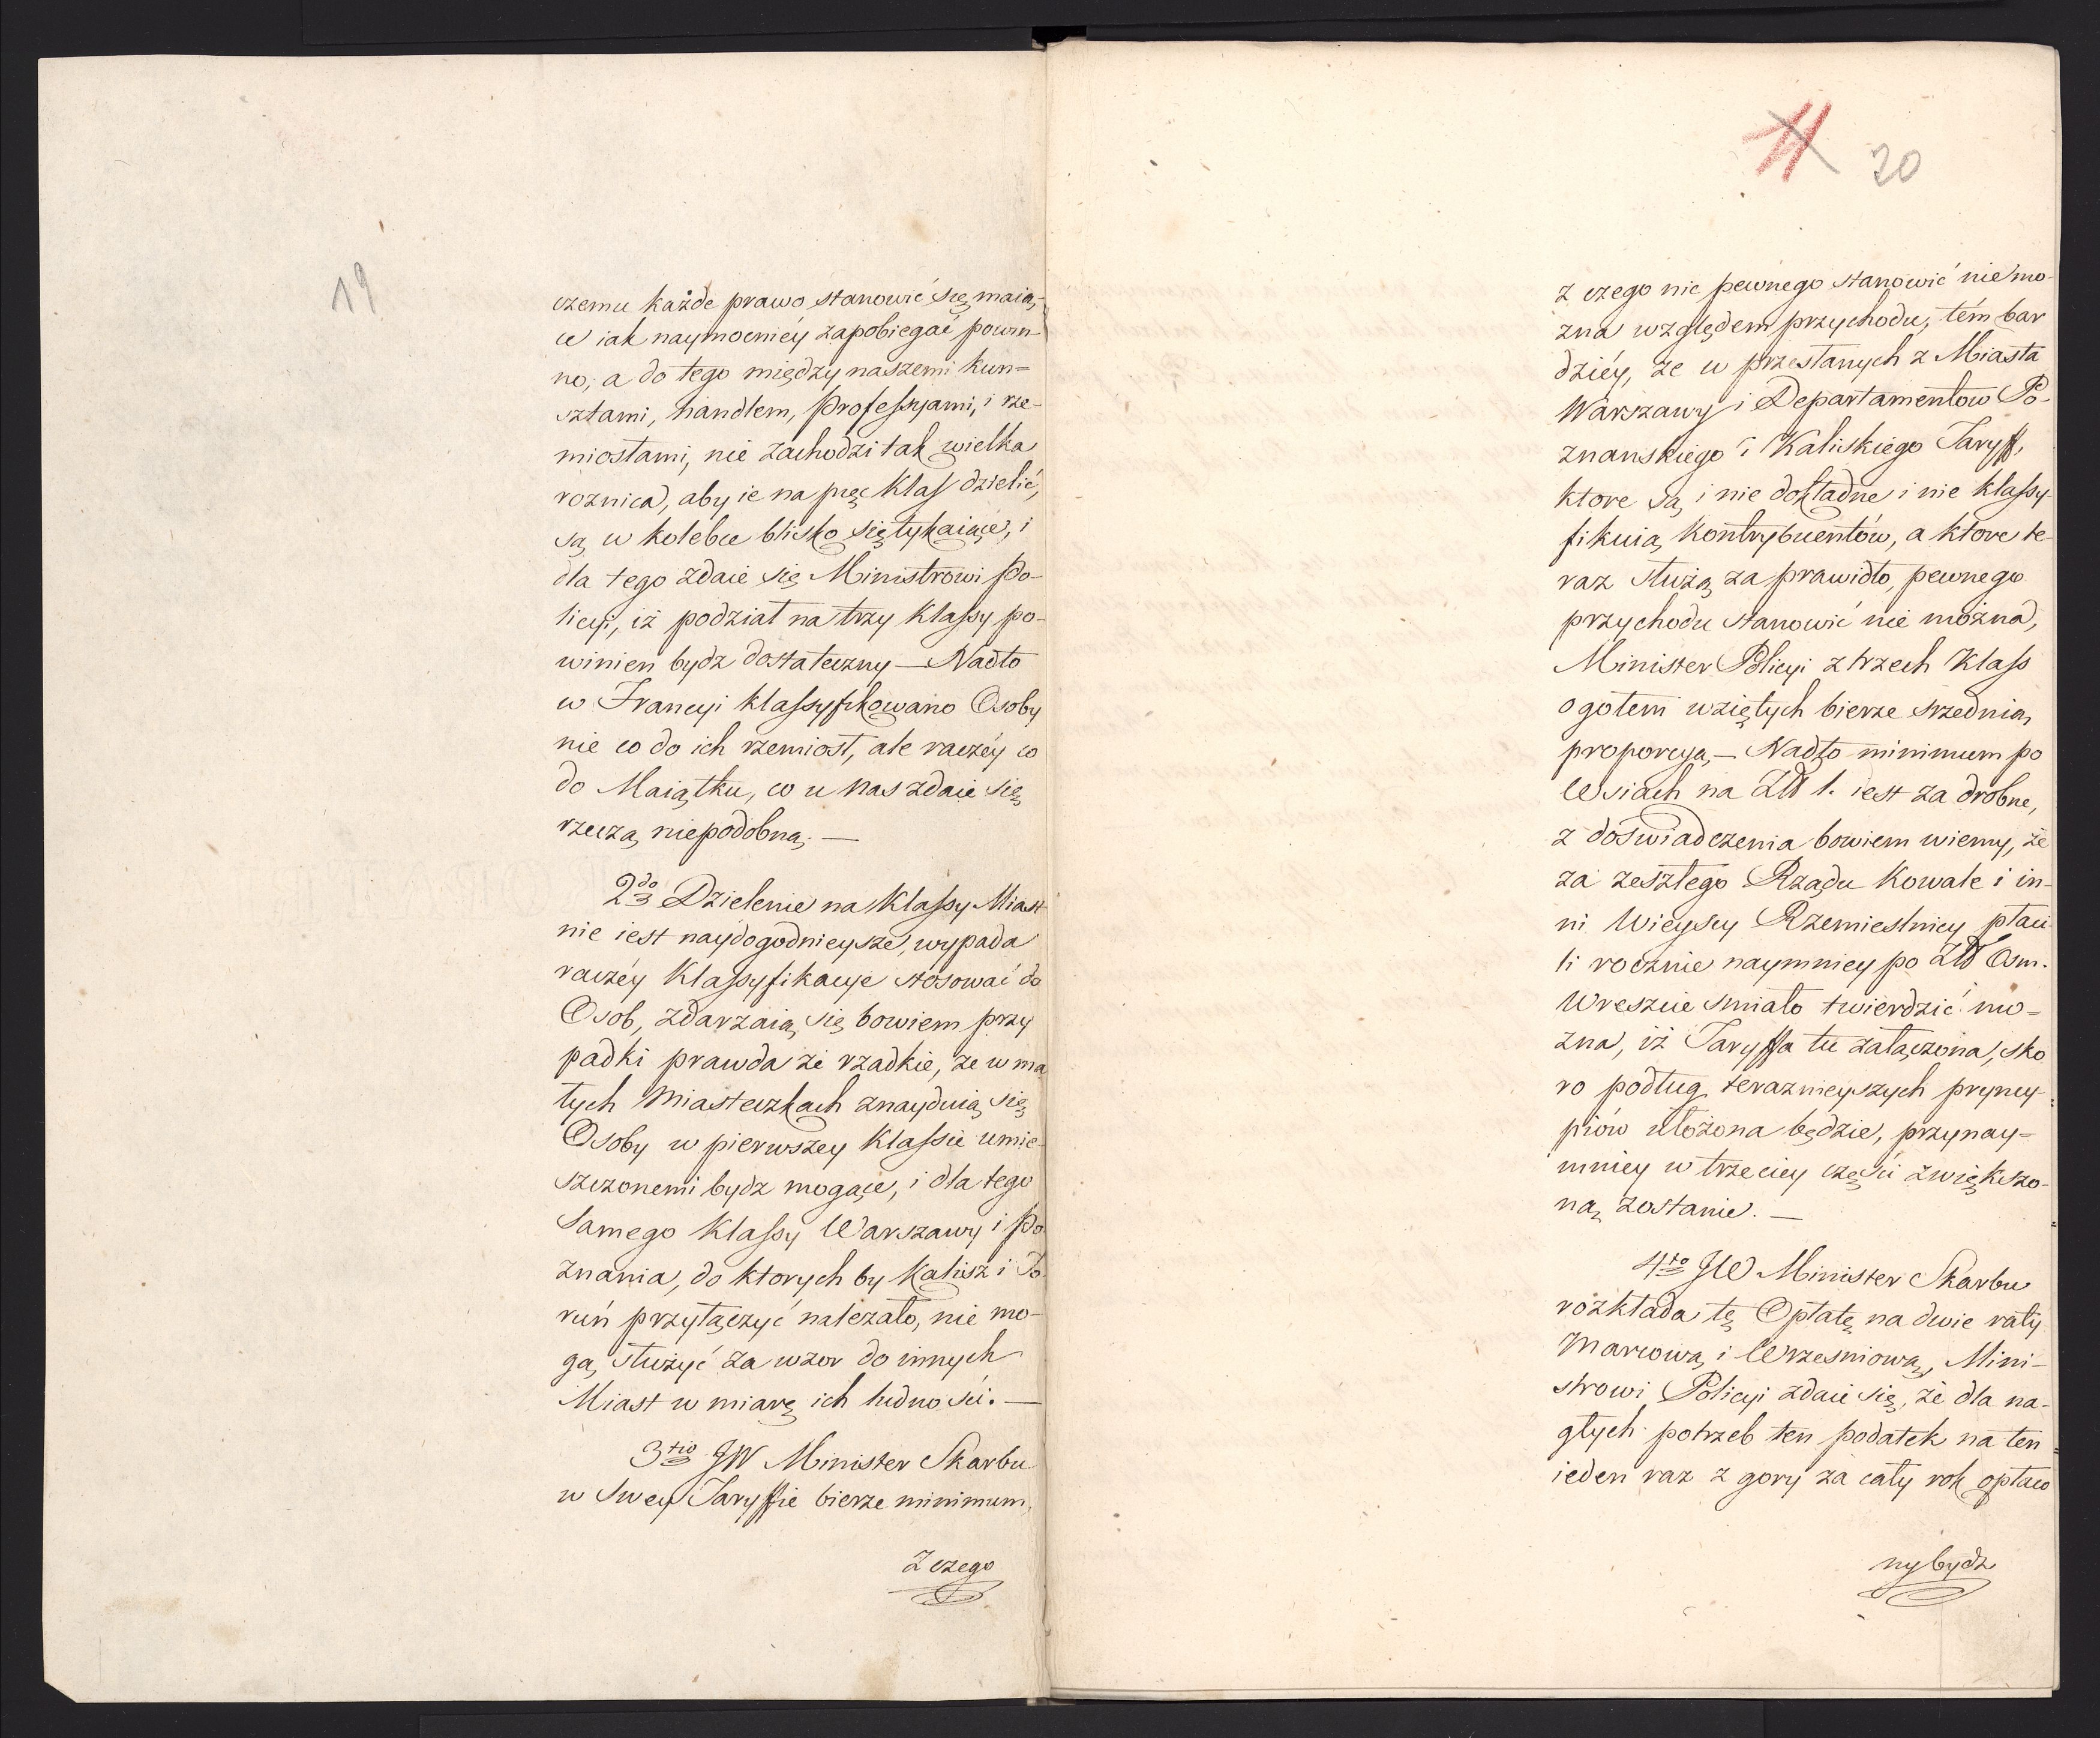 19
czemu każde prawo stanowić się maią-
ce iak naymocniéy zapobiegać powin-
no; a do tego między naszemi kun=
sztami, handlem, professyami, i rze-
miosłami, nie zachodzi tak wielka
roznica, aby ie na pięc Klass dzielić,
są w kolebce blisko się tykaiące, i
dla tego zdaie się Ministrowi Po-
licyi, iż podział na trzy Klassy po-
winien bydz dostateczny — Nadto
w Francyi klassyfikowano Osoby
nie co do ich rzemiost, ale raczéy co
do Maiątku, co u nas zdaie się
rzeczą niepodobną. —
2do Dzielenie na Klassy Miast
nie iest naydogodnieysze, wypada
raczéy Klassyfikacye stosować do
Osob, zdarzaią się bowiem przy
padki prawda że rzadkie, że w ma
łych Miasteczkach znayduią się
Osoby w pierwszey Klassie umie-
szczonemi bydz mogące, i dla tego
samego Klassy Warszawy i Po
znania, do ktorych by Kalisz i To-
ruń przyłączyć należało, nie mo-
gą służyć za wzor do innych
Miast w miarę ich ludności. —
3tio JW Minister Skarbu
w swey Taryffie bierze minimum,
Z czego
11 20
z czego nic pewnego stanowić nie mo-
zna względem przychodu, tém bar
dziéy, że w przesłanych z Miasta
Warszawy i Departamentow Po-
znanskiego i Kaliskiego Taryff,
ktore są i nie dokładne i nie klassy-
fikuią Kontrybuentów, a ktore te-
raz służą za prawidło, pewnego
przychodu stanowić nie można,
Minister Policyi z trzech Klass
ogołem wziętych bierze srzednią
proporcyą, — Nadto minimum po
Wsiach na Złł 1. iest za drobne,
z doswiadczenia bowiem wiemy, że
za zeszłego Rządu Kowale i in-
ni Wieyscy Rzemieslnicy płaci-
li rocznie naymniey po Złł Osm.
Wreszcie smiało twierdzić mo=
zna, iż Taryffa tu załączona, sko
ro podług terazнieyszych pryncy-
piów ułożona będzie, przynay=
mniey w trzeciey części zwiększo-
ną zostanie. —
4to JW Minister Skarbu
rozkłada tę Opłatę na dwie raty
Marcową i Wrzesniową, Mini-
strowi Policyi zdaie się, że dla na-
głych potrzeb ten podatek na ten
ieden raz z gory za cały rok opłaco
ny bydz